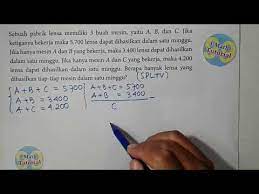 Sebuah pabrik lensa memiliki 3 buah mesin, yaitu A, B, dan C. Jika
ketiganya bekerja maka 5.700 lensa dapat dihasilkan dalam satu minggu.
Jika hanya mesin A dan B yang bekerja, maka 3.400 lensa dapat dihasilkan
dalam satu minggu. Jika hanya mesin A dan C yang bekerja, maka 4.200
lensa dapat dihasilkan dalam satu minggu. Berapa banyak lensa yang
dihasilkan tiap-tiap mesin dalam satu minggu? (SPLTV)
A+B+C = 5700
A+B = 3400
A+C = 4.200
A+B+C = 5700
A+B = 3400
C
Math
Tutorial
Math
Tutorial